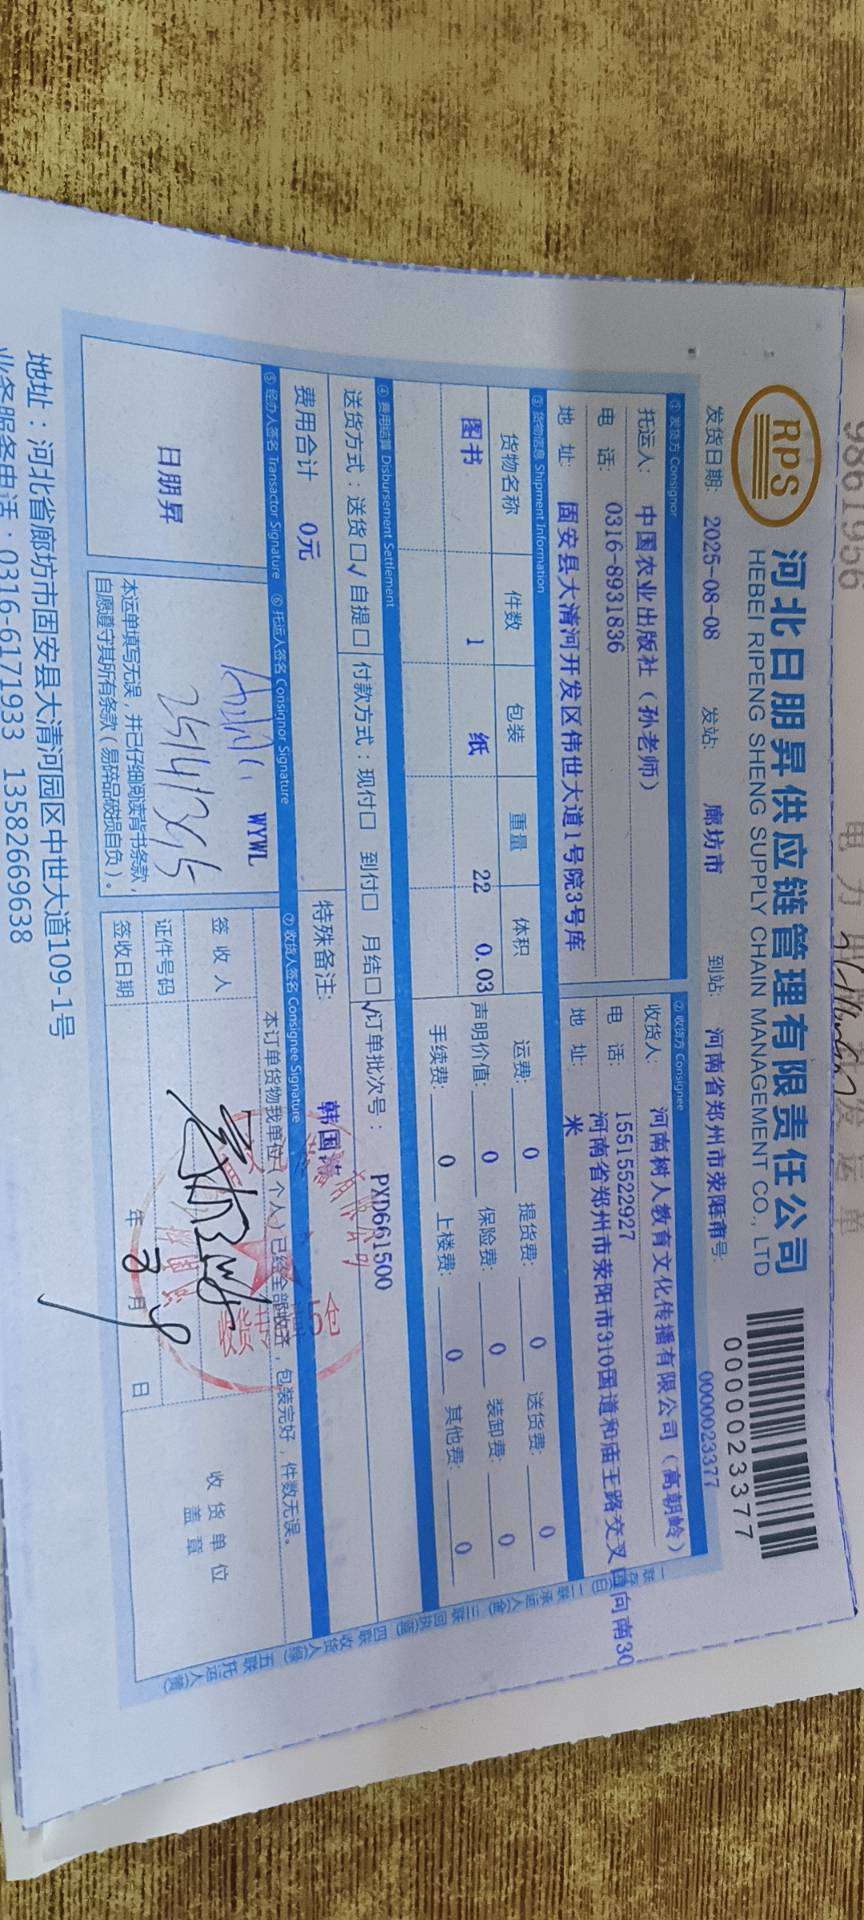 RPS
河北日朋昇供应链管理有限责任公司
HEBEI RIPENG SHENG SUPPLY CHAIN MANAGEMENT CO., LTD
0000023377
发货日期: 2025-08-08 发站: 廊坊市 到站: 河南省郑州市荥阳市 号: 0000023377
① 发货方 Consignor ② 收货方 Consignee
托运人: 中国农业出版社（孙老师） 收货人: 河南树人教育文化传播有限公司（高朝岭）
电 话: 0316-8931836 电 话: 15515522927
地 址: 固安县大清河开发区伟世大道1号院3号库 地 址: 河南省郑州市荥阳市310国道和庙王路交叉口向南30
米
③ 货物信息 Shipment Information
货物名称 件数 包装 重量 体积 运费: 0 提货费: 0 送货费: 0
图书 1 纸 22 0.03 声明价值: 0 保险费: 0 装卸费: 0
手续费: 0 上楼费: 0 其他费: 0
④ 费用结算 Disbursement Settlement
送货方式：送货□√ 自提□ 付款方式：现付□ 到付□ 月结□√ 订单批次号： PXD661500
费用合计 0元 特殊备注: 韩国涛
⑤ 经办人签名 Transactor Signature ⑥ 托运人签名 Consignor Signature ⑦ 收货人签名 Consignee Signature
本订单货物我单位（个人）已经全部收齐，包装完好，件数无误。
日朋昇 WYWL 签 收 人 收 货 单 位
盖 章
证件号码
本运单填写无误，并已仔细阅读背书条款， 签收日期 年 8 月 9 日
自愿遵守其所有条款（易碎品破损自负）。
地址：河北省廊坊市固安县大清河园区中世大道109-1号
业务服务电话：0316-6171933 13582669638